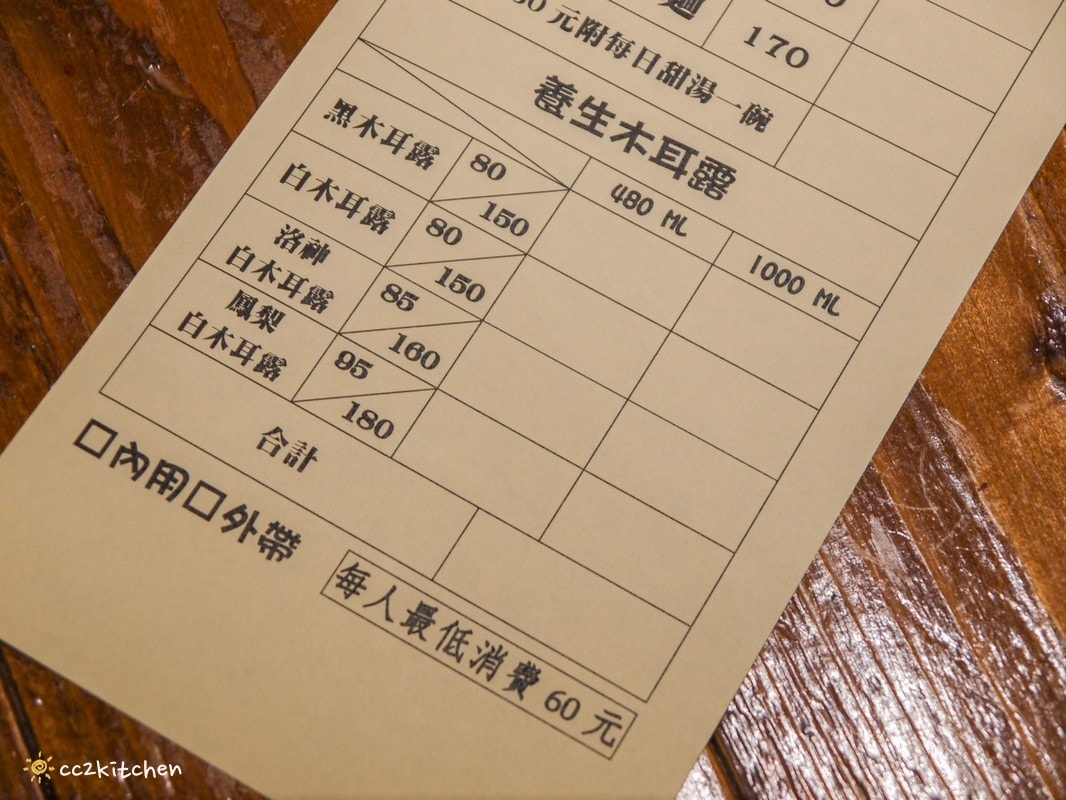 170
元附每日甜湯一碗
養生木耳露
480 ML
1000 ML
黑木耳露 80 150
白木耳露 80 150
洛神
白木耳露 85 160
鳳梨
白木耳露 95 180
合計
□內用□外帶
每人最低消費 60 元
cc2kitchen